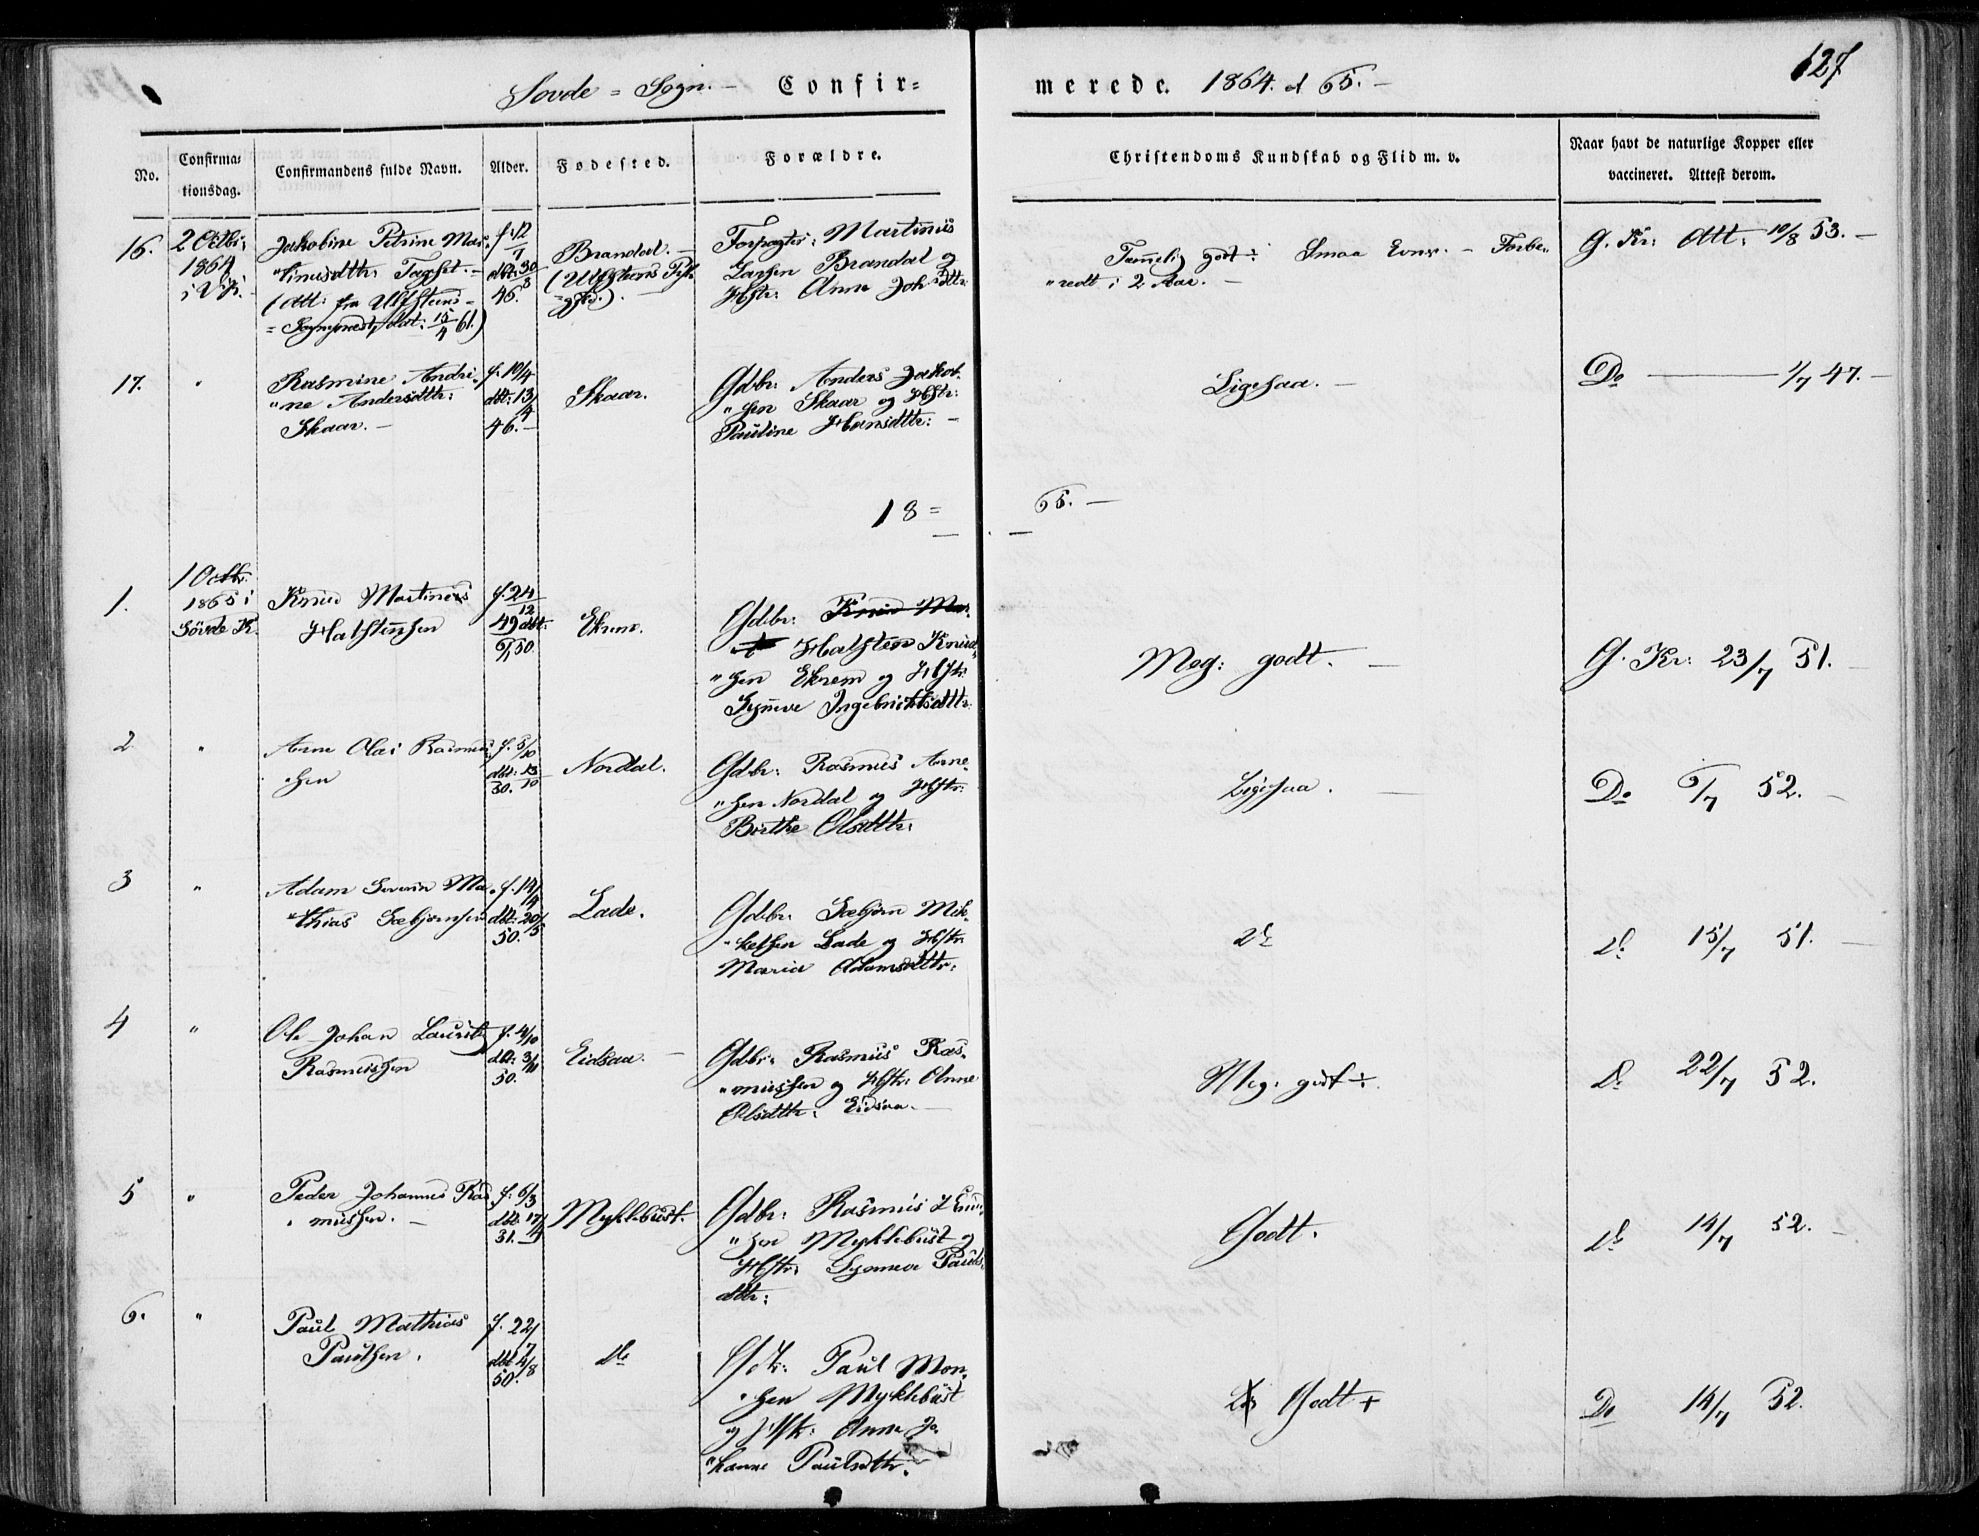 127
Sovde = Sogn. — Confir= merede. 1864. et 65. —
No. Confirma= tionsdag. Confirmandens fulde Navn. Alder. Fødested. Forældre. Christendoms Kundskab og Flid m. v. Naar havt de naturlige Kopper eller vaccineret. Attest derom.
16. 2 Octbr: 1864
Jakobine Petrine Mar=
"tinusdttr:
(Att: fra Ulfsteens=
=Sognepræst, dat: 15/4 61.)
f: 12/7
dbt: 30/8
46.
Brandal. —
(Ulfsteens
Forpagter: Martinus
Larsen Brandal og
Hstr: Anne Joh:dttr:
Tammelig godt ÷ Smaa Evner. — Forbe=
"redt i 2 Aar. —
G. Kr: Att: 10/8 53. —
17. "
Rasmine Andri=
"ne Andersdttr:
Skaar. —
f: 10/4
dbt: 13/4
46. —
Skaar.
Gdbr: Anders Jakob=
"sen Skaar og Hstr:
Pauline Hansdttr: —
Ligesaa. —
Do — 1/7 47. —
18= 65. —
1. 1 Octbr. 1865 i Søvde K.
Knud Martinus
Halstensen
f. 24/12
49 dbt:
6/1 50
Ekrem.
Gdbr: Knud Mar=
Halsten Knud=
"sen Ekrem og Hstr:
Synneve Ingebrichtsdttr:
Meg: godt. —
G. Kr: 23/7 51. —
2 "
Arne Olai Rasmus=
sen
f. 5/10
dbt: 13/10
50.
Nordal.
Gdbr: Rasmus Arne=
"sen Nordal og Hstr:
Birthe Olsdttr:
Ligesaa. —
Do 6/7 52. —
3 "
Adam Severin Ma=
"thias Sæbjørnsen
f. 14/4
dbt: 20/5
50.
Lade.
Gdbr: Sæbjørn Mik=
"kelsen Lade og Hstr:
Maria Adamsdttr:
do
do 15/7 51. —
4 "
Ole Johan Laurits
Rasmussen
f. 4/10
dbt: 3/11
50.
Eidsaa. —
Gdbr: Rasmus Ras=
"mussen og Hstr: Anne
Olsdttr: Eidsaa. —
Meg: godt ÷.
do 22/7 52.
5 "
Peder Johannes Ras
"mussen. —
f: 6/3
dbt: 17/4
51. —
Myklebust.
Gdbr: Rasmus Knud=
"sen Myklebust og
Hstr: Synneve Pauls=
dttr:
Godt.
do 14/7 52. —
6. "
Paul Mathias
Paulsen.
f. 22/7
dbt 4/8
50.
do
Gdbr: Paul Mon=
"sen Myklebust
og Hstr: Anne Jo=
"hanne Paulsdttr.
Godt +
Do 14/7 52.